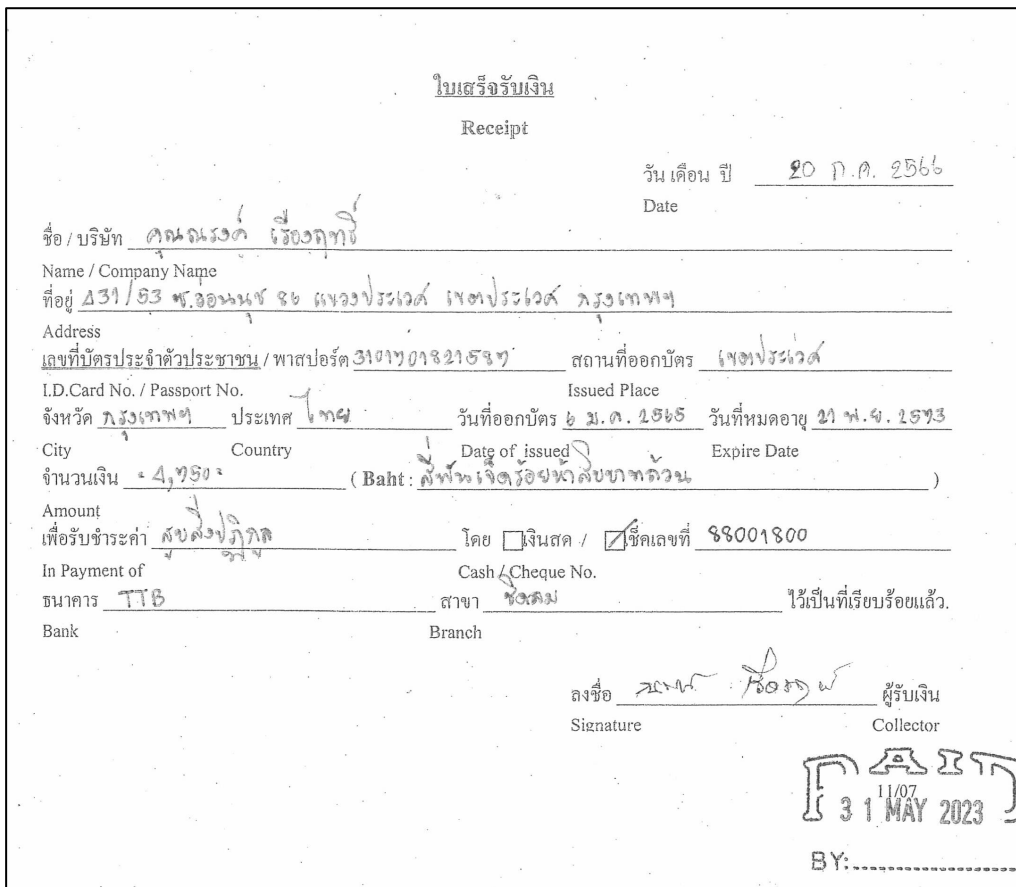 ใบเสร็จรับเงิน
Receipt
วัน เดือน ปี 20 ก.ค. 2566
Date
ชื่อ / บริษัท คุณณรงค์ เรืองฤทธิ์
Name / Company Name
ที่อยู่ 431/53 ซ.อ่อนนุช 86 แขวงประเวศ เขตประเวศ กรุงเทพฯ
Address
เลขที่บัตรประจำตัวประชาชน / พาสปอร์ต 3101701821587 สถานที่ออกบัตร เขตประเวศ
I.D.Card No. / Passport No. Issued Place
จังหวัด กรุงเทพฯ ประเทศ ไทย วันที่ออกบัตร 6 ม.ค. 2565 วันที่หมดอายุ 21 พ.ย. 2573
City Country Date of issued Expire Date
จำนวนเงิน 4,750 ( Baht : สี่พันเจ็ดร้อยห้าสิบบาทถ้วน )
Amount
เพื่อรับชำระค่า สูบสิ่งปฏิกูล โดย เงินสด / เช็คเลขที่ 88001800
In Payment of Cash / Cheque No.
ธนาคาร TTB สาขา ชิดลม ไว้เป็นที่เรียบร้อยแล้ว.
Bank Branch
ลงชื่อ ผู้รับเงิน
Signature Collector
PAID
11/07
31 MAY 2023
BY: